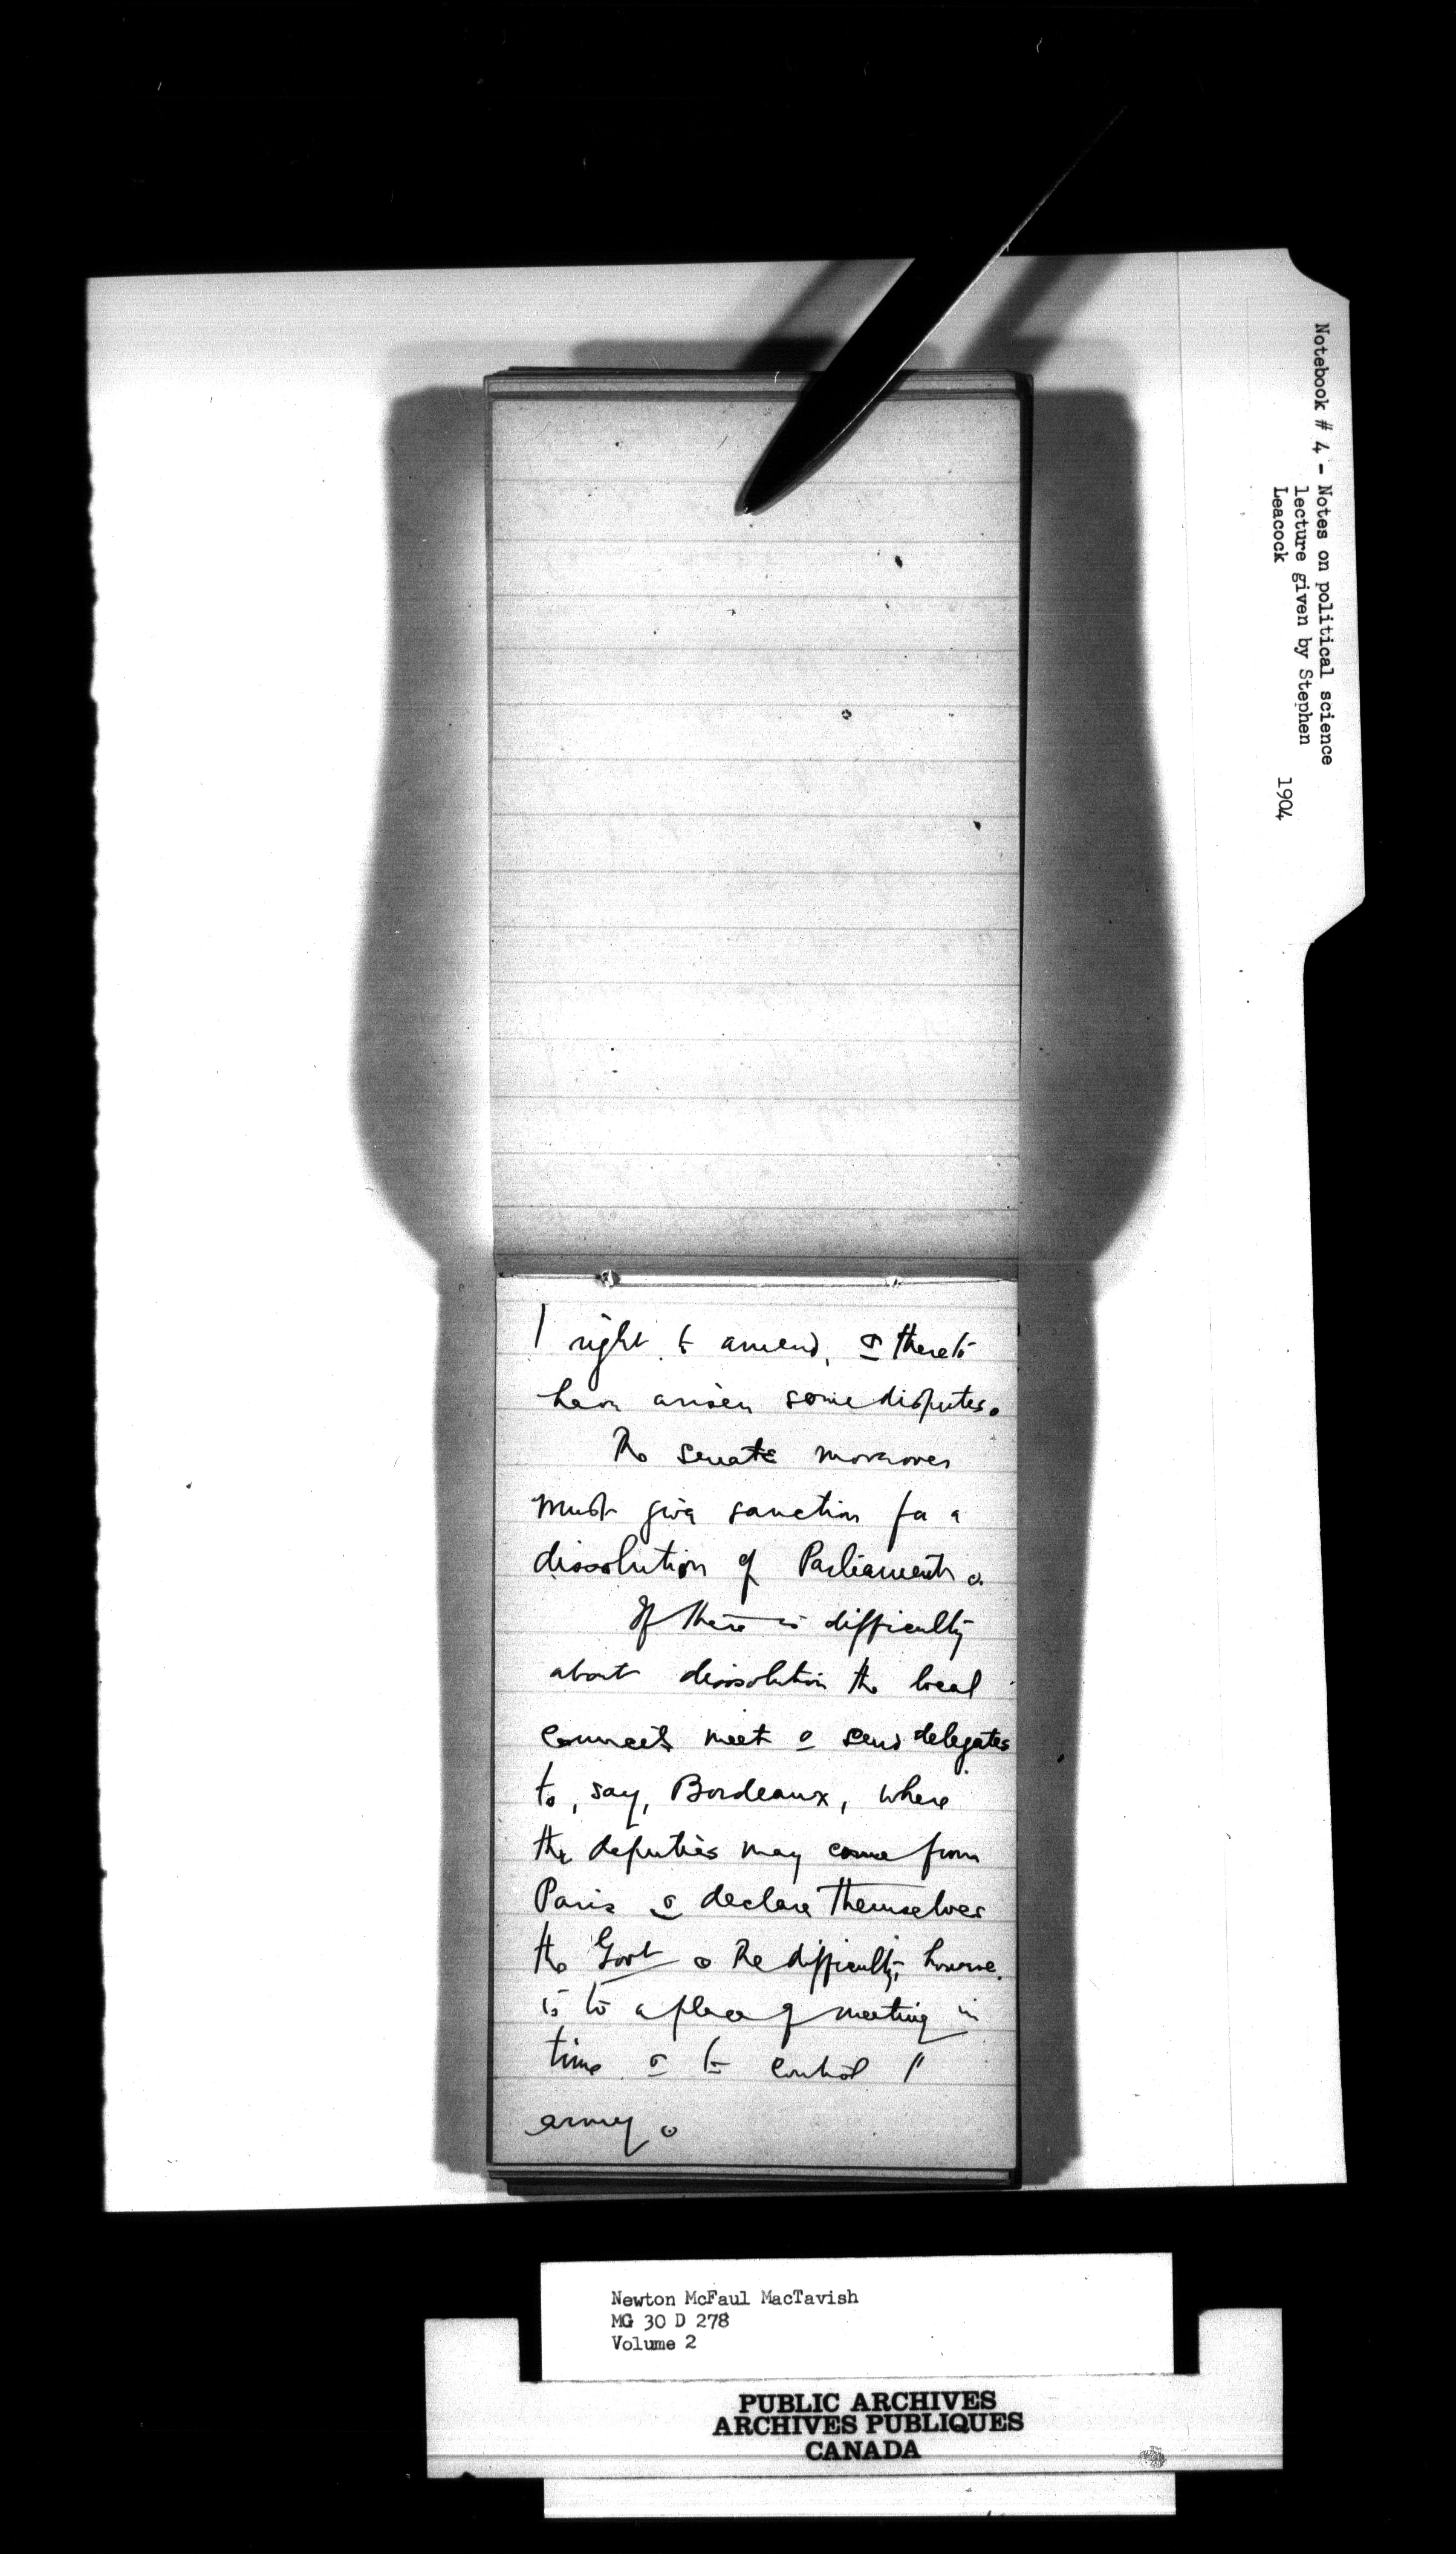 Notebook # 4 - Notes on political science
lecture given by Stephen
Leacock 1904
right to amend, & thereto
have arisen some disputes.
The Senate moreover
must give sanction for a
dissolution of Parliament.
If there is difficulty
about dissolution the local
councils meet & send delegates
to, say, Bordeaux, where
the deputies may come from
Paris & declare themselves
the Govt. The difficulty, however,
is to a place of meeting in
time & to control "
army.
Newton McFaul MacTavish
MG 30 D 278
Volume 2
PUBLIC ARCHIVES
ARCHIVES PUBLIQUES
CANADA